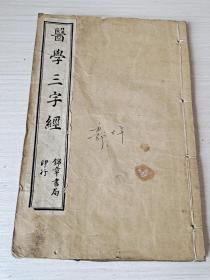 醫學三字經
錦章書局
印行